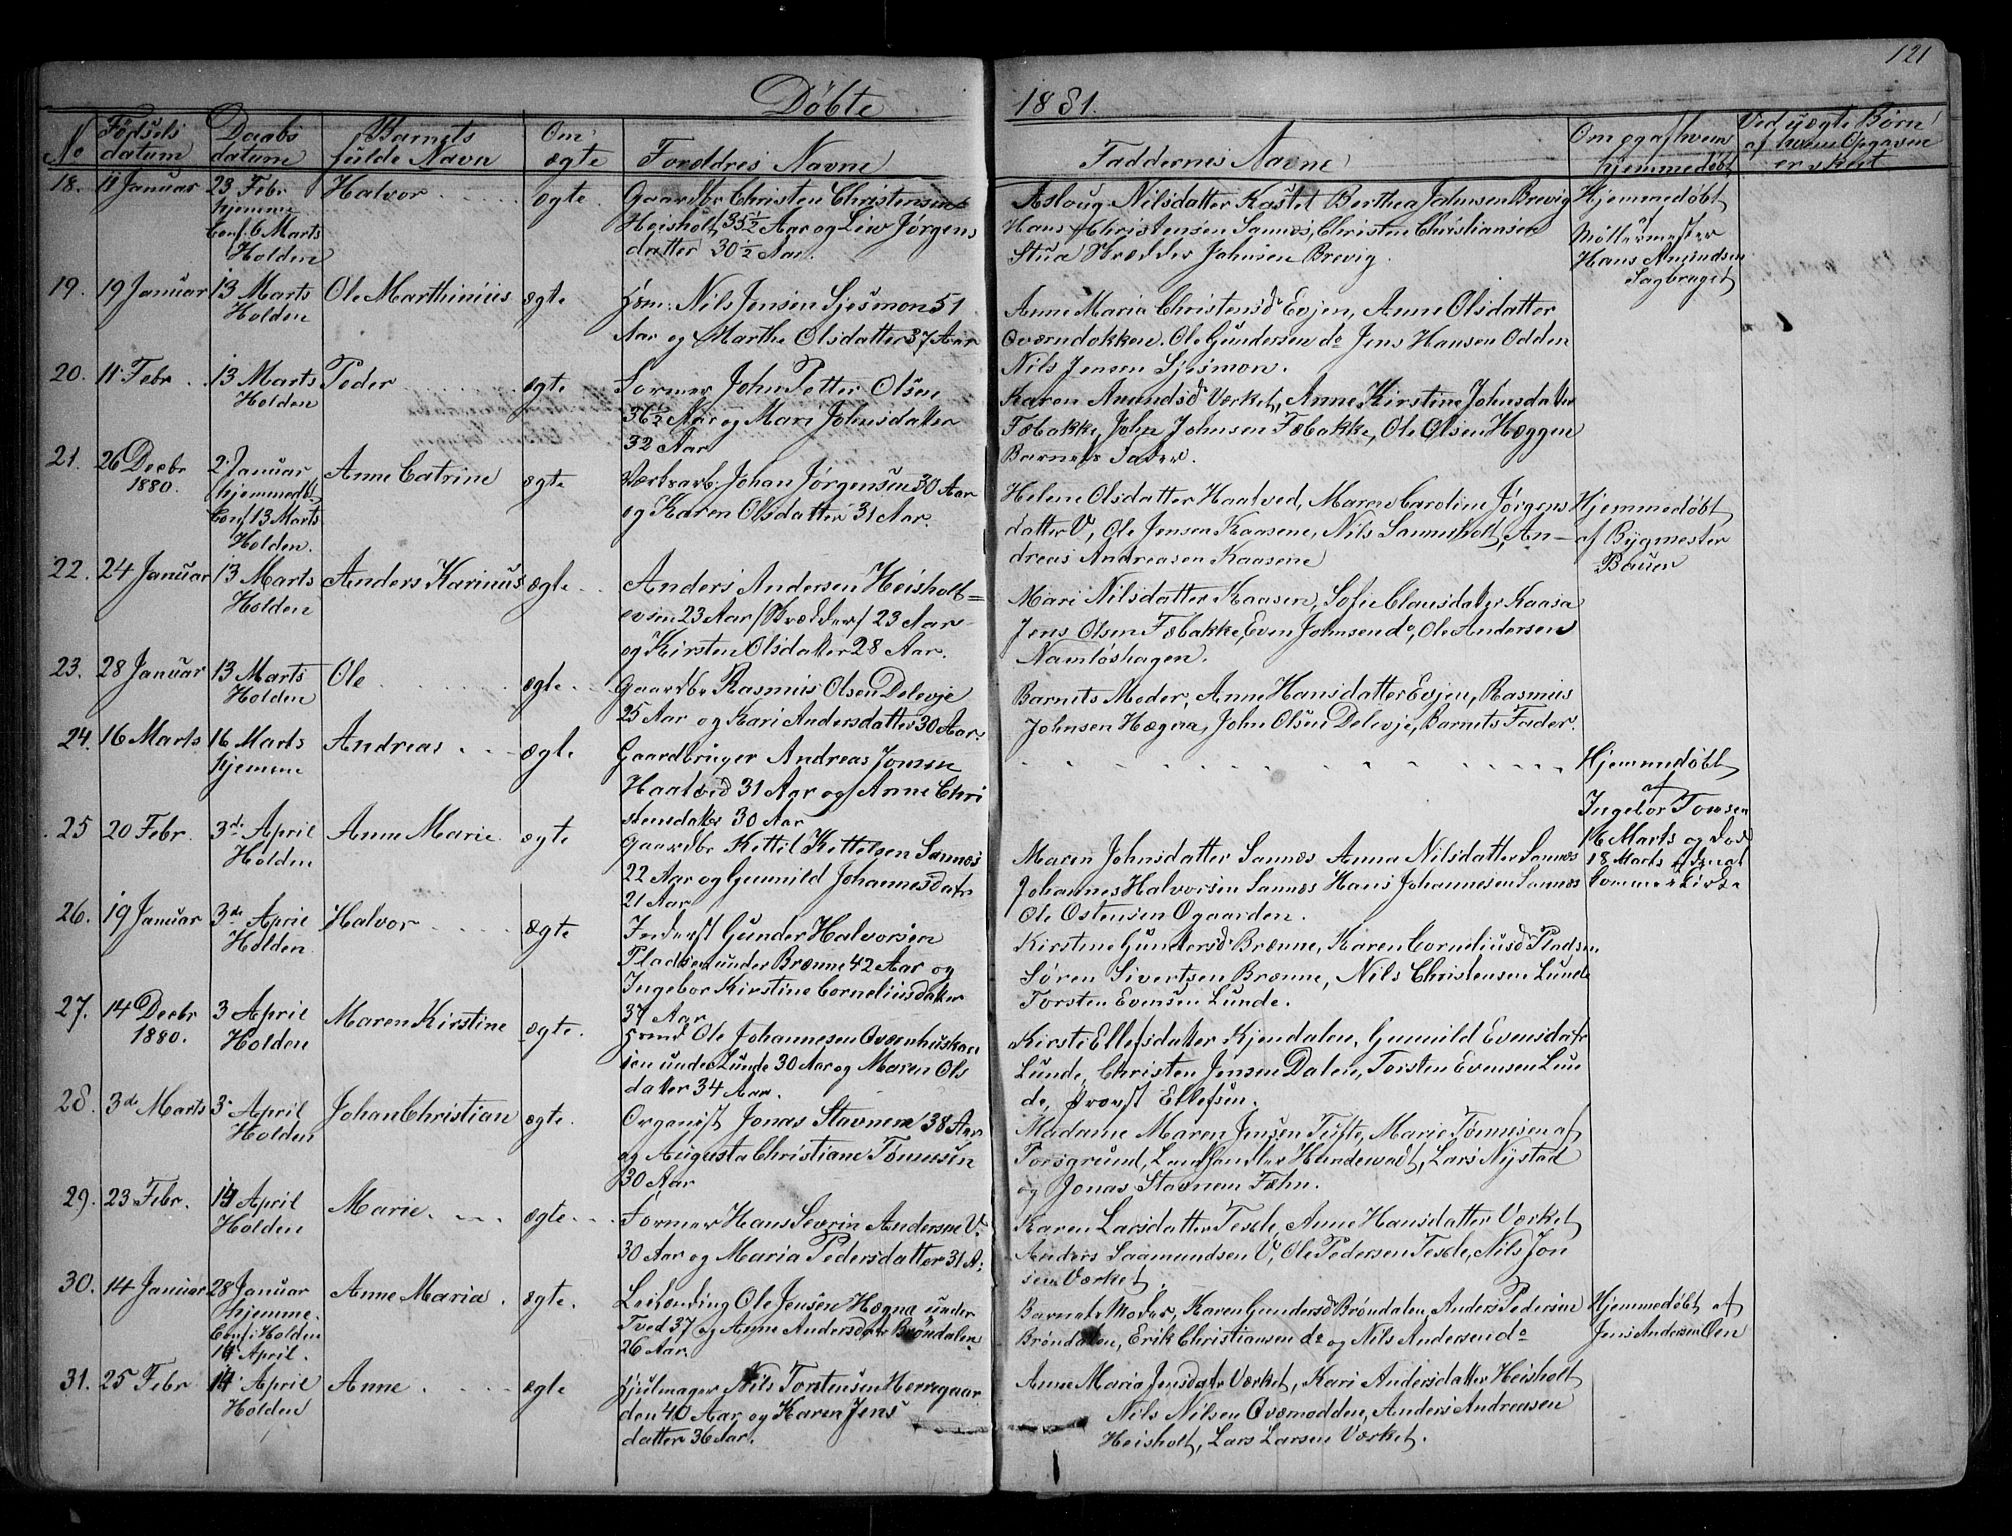 121
Døbte 1881.
No Fødsels datum Daabs datum Barnets fulde Navn Om ægte Forældres Navne Faddernes Navne Om og af hvem hjemmedøbt Ved uægte Børn af hvem Opgaven er skeet
18. 11 Januar 23 Febr Halvor ægte Gaardbr Christen Christensen Aslaug Nilsdatter Kastet Berthea Johnsen Brevig Hjemmedøbt
hjemme Heisholt 35½ Aar og Liv Jørgens Hans Christensen Sannes, Christen Christiansen Møllermester
Conf. 6 Marts datter 30½ Aar. Stua Skrædder Johnsen Brevig. Hans Amundsen
Holden Sagbruget
19. 19 Januar 13 Marts Ole Marthinius ægte Nils Jensen Sjesmon 51 Anne Maria Christensd Evjen, Anne Olsdatter
Holden Aar og Marthe Olsdatter 37 Aar Ole Gundersen do Jens Hansen Odden
Nils Jensen Sjesmon.
20. 11 Febr. 13 Marts Peder ægte Former John Petter Olsen Karen Amundsd Værket, Anne Kirstine Johnsdater
Holden 36½ Aar og Mari Johnsdater Fæbakke, John Johnsen Fæbakke, Ole Olsen Hæggen
32 Aar Barnets Fader.
21. 26 Decbr 2 Januar Anne Catrine ægte Værksarb. Johan Jørgensen 30 Aar Helene Olsdatter Haatved, Maren Caroline Jørgens Hjemmedøbt
1880. hjemmedøbt og Karen Olsdatter 31 Aar. datter V, Ole Jensen Kaasene, Nils Sannesholt, An- af Bygmester
Conf 13 Marts dreas Andreasen Kaasene Bauer
Holden.
22. 24 Januar 13 Marts Anders Karinus ægte Anders Andersen Heisholt= Mari Nilsdatter Kaasen, Sofie Clausdater Kaasa
Holden 23 Aar /Skrædder/ 23 Aar Jens Olsen Fæbakke, Even Johnsen do, Ole Andersen
og Kirsten Olsdater 28 Aar. Namløshagen.
23. 28 Januar 13 Marts Ole ægte Gaardbr Rasmus Olsen Delevje Barnets Moder, Anne Hansdatter Evjen, Rasmus
Holden 25 Aar og Kari Andersdatter 30 Aar. Johnsen Hægna, John Olsen Delevje, Barnets Fader.
24. 16 Marts 16 Marts Andreas ægte Gaardbruger Andreas Jonsen Hjemmedøbt
hjemme Haatved 31 Aar og Anne Chri af
stensdater 30 Aar Ingebor Tonsen
16 Marts og død
18 Marts
25 20 Febr. 3d April Anne Marie ægte Gaardbr Kettil Kettelsen Sannes Maren Johnsdatter Sannes Anna Nilsdatter Sannes
Holden 22 Aar og Gunnild Johannesdatr Johannes Halvorsen Sannes Hans Johannesen Sannes
21 Aar Ole Ostensen Ogaarden.
26. 19 Januar 3de April Halvor ægte Inderst Gunder Halvorsen Kirstine Gundersd Brænne, Karen Corneliusd Pladsen
Holden Pladsen under Brænne 42 Aar og Søren Sivertsen Brænne, Nils Christensen Lunde
Ingebor Kirstine Corneliusdater Torsten Evensen Lunde.
37 Aar
27. 14 Decbr 3 April Maren Kirstine ægte. Ole Johannesen Qværnhuskaa Kirsti Ellefsdatter Kjendalen, Gunnild Evensdatr
1880. Holden sen under Lunde 30 Aar og Maren Ols Lunde, Christen Jensen Dalen, Torsten Evensen Lun
dater 34 Aar. de, Provst Ellefsen.
28. 3de Marts 3. April Johan Christian ægte. Organist Jonas Stavnem 38 Aar Madame Maren Jensen Tufte, Marie Tønnesen af
Holden og Augusta Christiane Tønnesen Porsgrund, Landhandler Hundevadt, Lars Nystad
30 Aar og Jonas Stavnem Fæhn.
29. 23 Febr. 14 April Marie. ægte. Former Hans Severin Andersne V. Karen Larsdatter Texle, Anne Hansdatter Værket
Holden 30 Aar og Maria Pedersdatter 31 A. Anders Saamundsen V, Ole Pedersen Texle, Nils Jon
sen Værket.
30. 14 Januar 28 Januar Anne Maria. ægte. Leilending Ole Jensen Hægna under Barnets Moder, Karen Gundersd Brøndalen, Anders Pedersen Hjemmedøbt af
hjemme. Tved 37 og Anne Andersdatr Brøndalen Brøndalen, Erik Christiansen do og Nils Andersen do Jens Andersen Oen
Conf: Holden 26 Aar.
14 April.
31. 25 Febr 14 April Anne ægte Hjulmager Nils Torstensen Herregaar Anne Maria Jensdatr Værket, Kari Andersdatter Heisholt
Holden den 40 Aar og Karen Jens Nils Nilsen Qværnodden, Anders Andreasen
datter 36 Aar. Heisholt, Lars Larsen Værket.